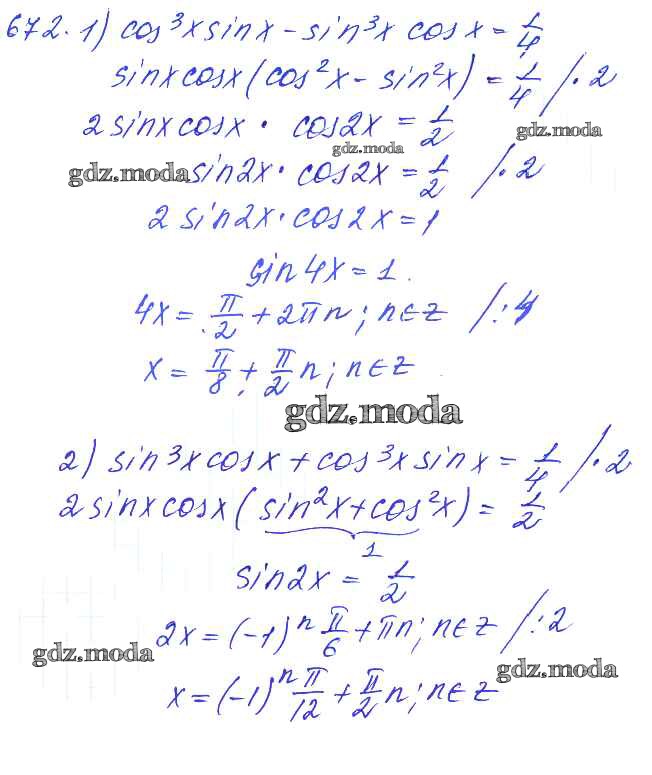 672. 1) cos³x sinx - sin³x cosx = 1/4
sinx cosx (cos²x - sin²x) = 1/4 /·2
2 sinx cosx · cos2x = 1/2
gdz.moda
gdz.moda
gdz.moda sin2x · cos2x = 1/2 /·2
2 sin2x · cos2x = 1
sin4x = 1.
4x = π/2 + 2πn ; n∈z /:4
x = π/8 + π/2 n ; n∈z
gdz.moda
2) sin³x cosx + cos³x sinx = 1/4 /·2
2 sinx cosx (sin²x + cos²x) = 1/2
1
sin2x = 1/2
2x = (-1)ⁿ π/6 + πn ; n∈z /:2
gdz.moda
gdz.moda
x = (-1)ⁿ π/12 + π/2 n ; n∈z